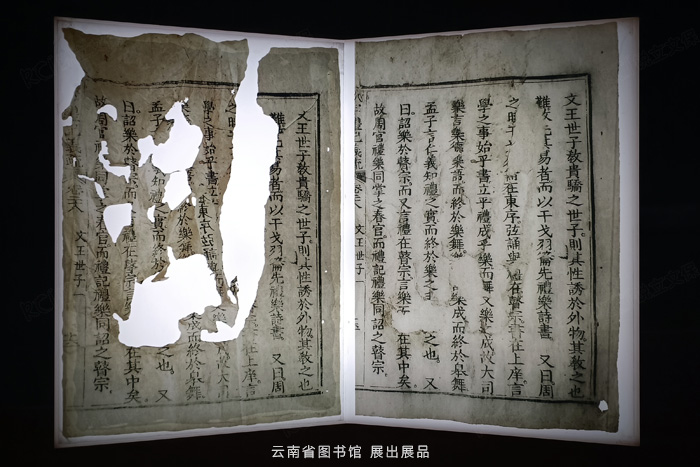 文王世子教貴驕之世子則其性誘於外物其教之也
難 易者而以干戈羽籥先禮樂詩書 又曰周
 在東序弦誦 禮在瞽宗書在上庠言
學之事始乎書立乎禮成乎樂而舞又樂之成故大司
樂言樂德樂語而終於樂舞 朱成而終於樂舞
孟子言仁義知禮之實而終於樂之 也 又
曰詔樂於瞽宗而又言禮在瞽宗言樂 在其中矣
故周官禮樂同掌之春官而禮記禮樂同詔之瞽宗
文王世子
文王世子教貴驕之世子則其性誘於外物其教之也
難 易者而以干戈羽籥先禮樂詩書 又曰周
學之事始乎書立
 成而終於樂舞
孟子 知禮之實而終 也 又
曰詔樂於瞽宗 禮在瞽 在其中矣
故周官禮樂同掌之春官而禮記禮樂同詔之瞽宗
文王世子
云南省图书馆 展出展品